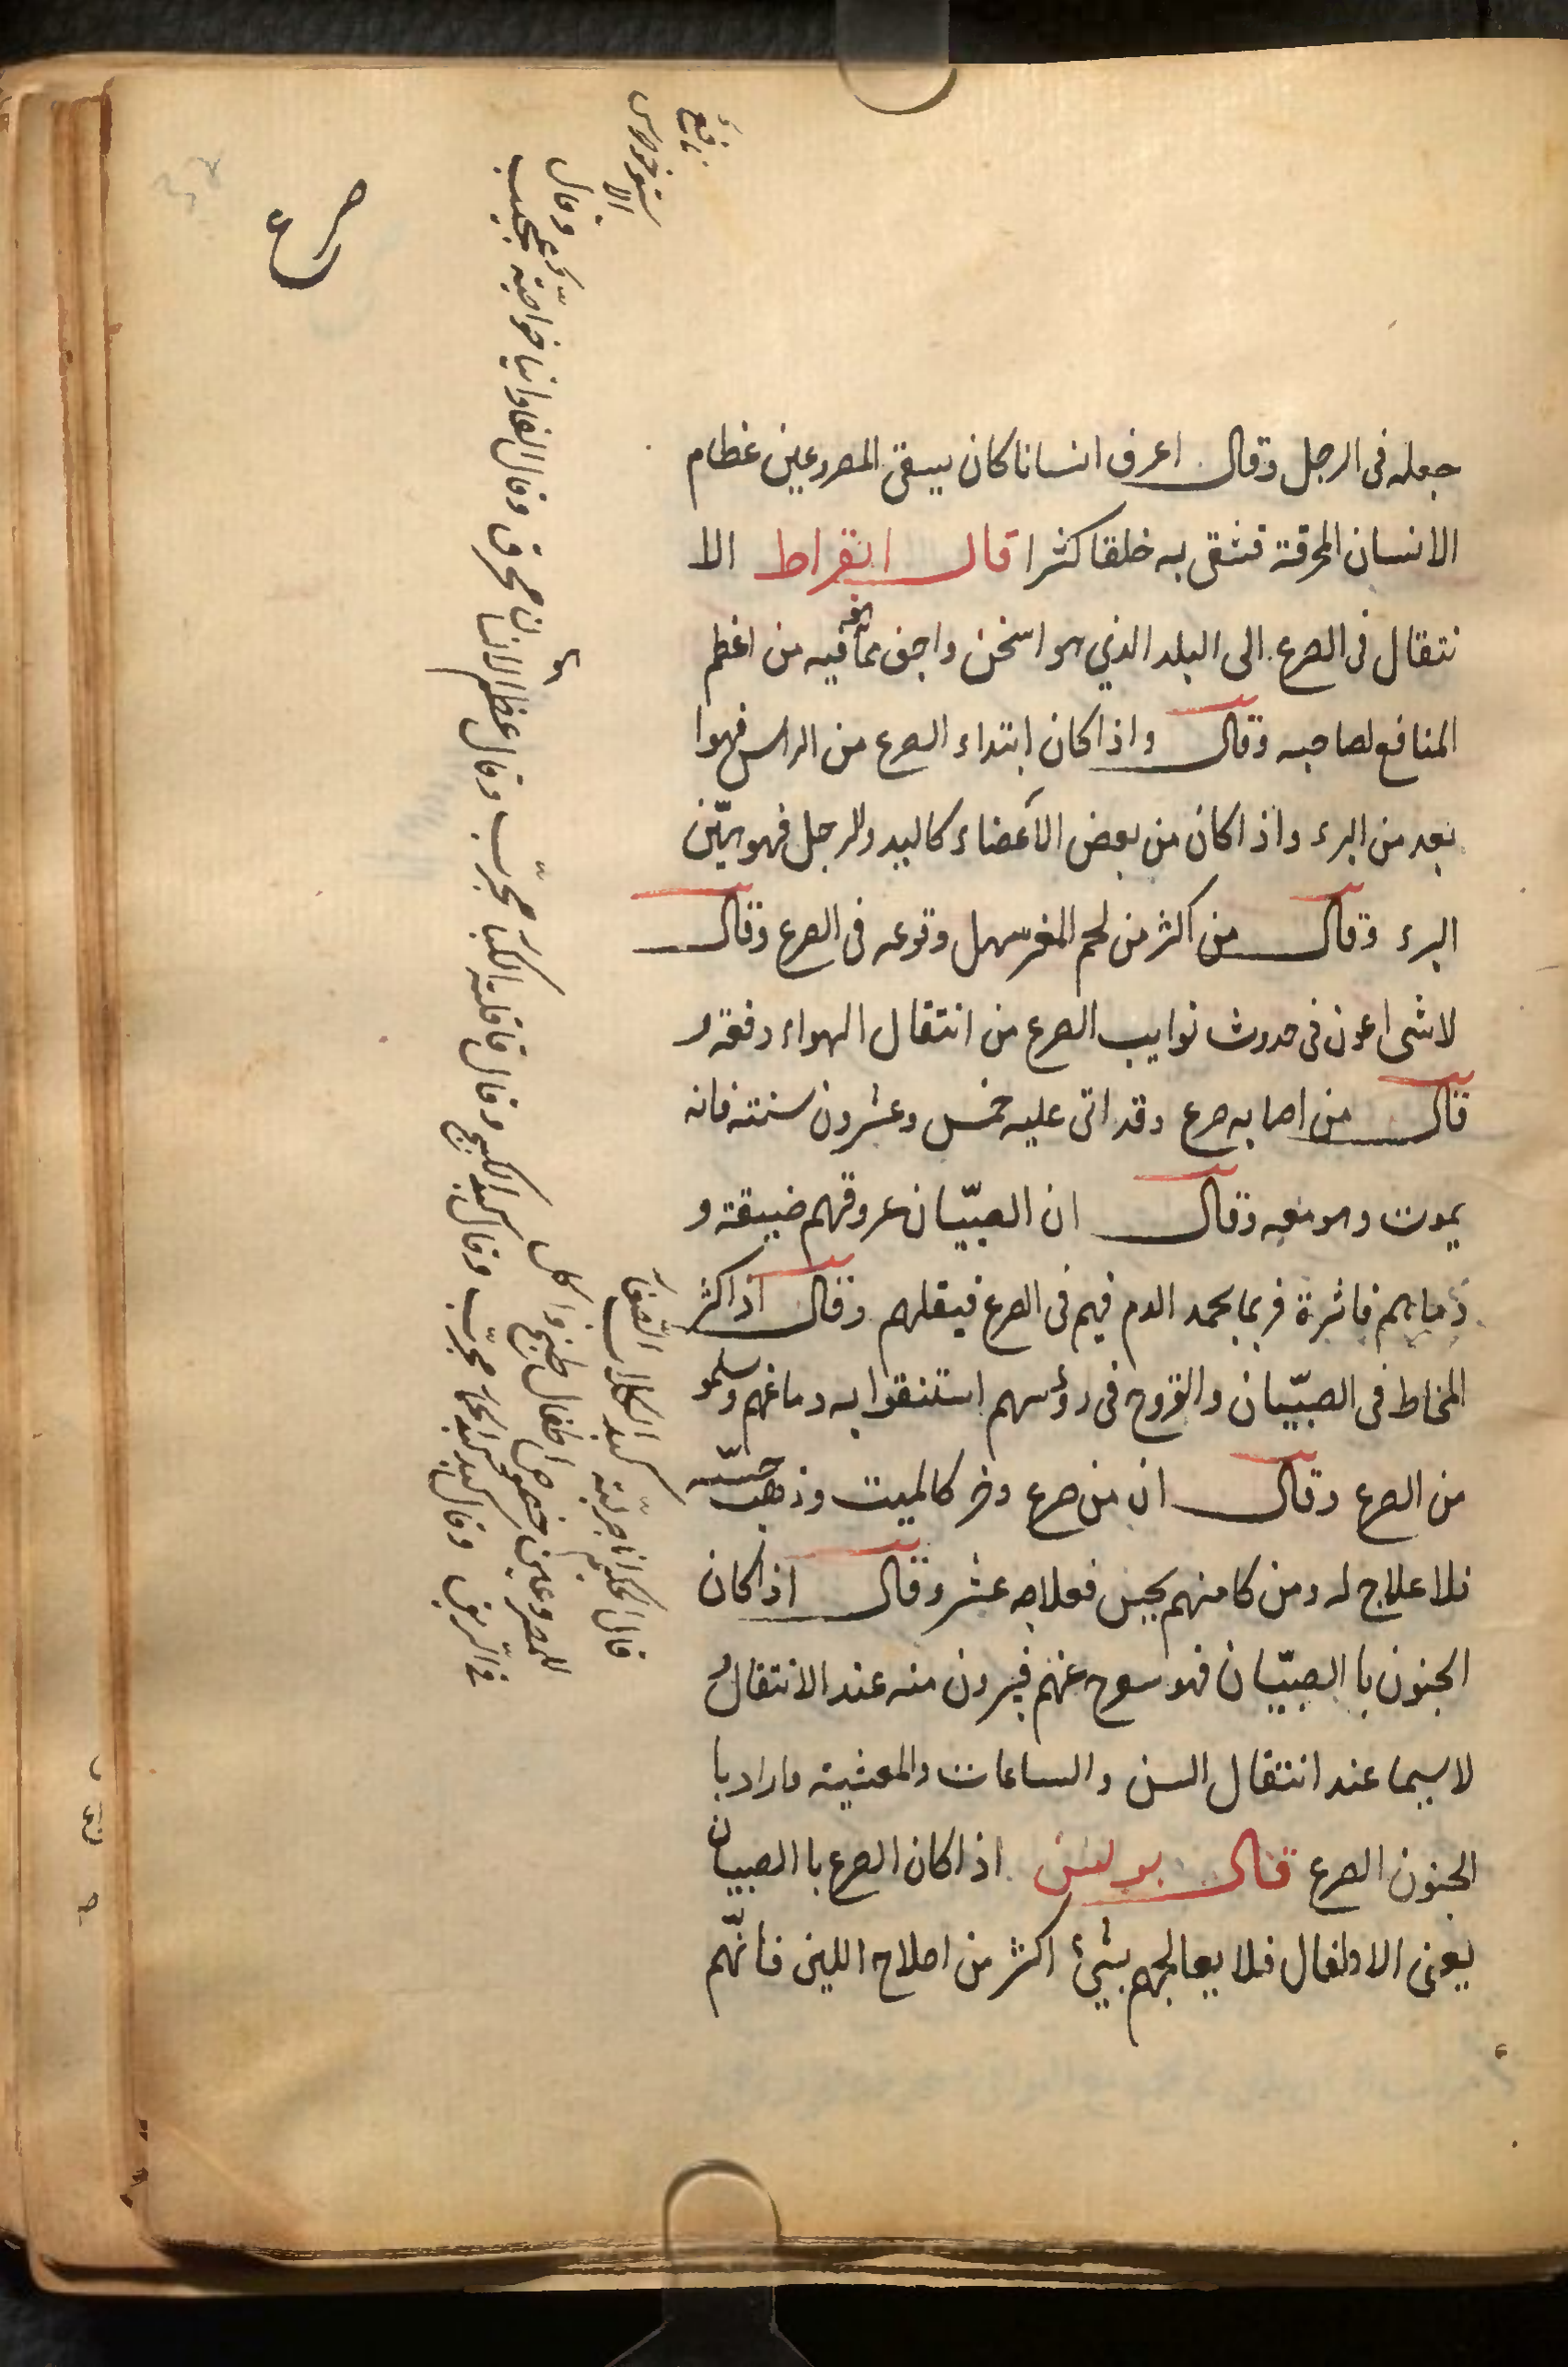 جعله فى الرجل وقال اعرف انسانا كان يسقى المصروعين عظام
الانسان المحرقة فشفى به خلقا كثرا قال ابقراط الا
نتقال فى الصرع الى البلد الذي هو اسخن واجف مما فيه من اعظم
المنافع لصاحبه وقال واذا كان ابتداء الصرع من الراس فهوا
بعد من البرء واذا كان من بعض الأعضاء كاليد والرجل فهو هيّن
البرء وقال من اكثر من لحم المغر سهل وقوعه فى الصرع وقال
لا شى اعون فى حدوث نوايب الصرع من انتقال الهواء دفعة و
قال من اصابه صرع وقد اتى عليه خمس وعشرون سنته فانه
يموت وهو معه وقال ان الصبيّان عروقهم ضيقة و
دماءهم فاثرة فربما يجمد الدم فيهم فى الصرع فيقلهم وقال اذا كثر
المخاط فى الصبيّان والقروح فى رؤسهم استنقوا به دماغهم وسلمو
من الصرع وقال ان من صرع وخر كالميت وذهب حسّه
فلا علاج له ومن كا منهم يحبس فعلاجه عشر وقال اذا كان
الجنون با الصبيّان فهو عنهم فيبرون منه عند الانتقال و
لا سيما عند انتقال السن والساعات والمعشية واراد با
الجنون الصرع قال بولس اذا كان الصرع با الصبيان
يعنى الاطفال فلا يعالجهم بشيئ اكثر من اصلاح اللبن فانّهم
صرع
قال الحكيم انا جرّبته كبد الكلاب
للمصروعين خصوص اطفال طبخوا كل
وقال كبد مجرّب وقال
مجرّب وقال عظم الانسان محرق وقال الفاوانيا خواصته عجيب
وقال
الاستوخودوس
نافع